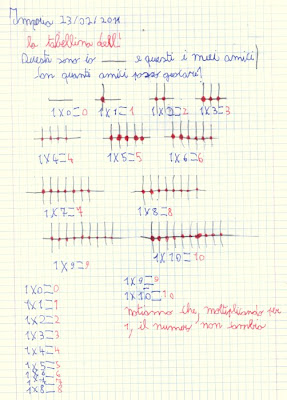 23/02/2011
la tabellina dell'1
Questa sono io ____ e questi i miei amici
Con quanti amici posso giocare?
1X0=0 1X1=1 1X2=2 1X3=3
1X4=4 1X5=5 1X6=6
1X7=7 1X8=8
1X9=9 1X10=10
1X0=0
1X1=1
1X2=2
1X3=3
1X4=4
1X5=5
1X6=6
1X7=7
1X8=8
1X9=9
1X10=10
Notiamo che, moltiplicando per
1, il numero non cambia